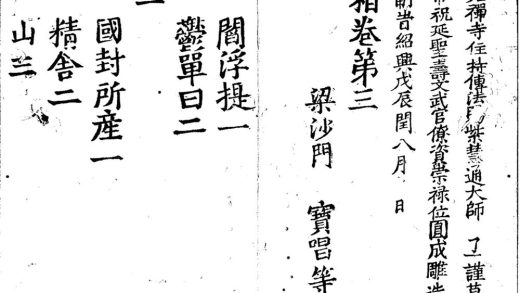 禪寺住持傳法紫慧通大師 了一謹募
祝延聖壽文武官僚資崇祿位圓成雕造
旹紹興戊辰閏八月 日
相卷第三
梁沙門 寶唱等
閻浮提一
鬱單曰二
國封所産一
精舍二
山三